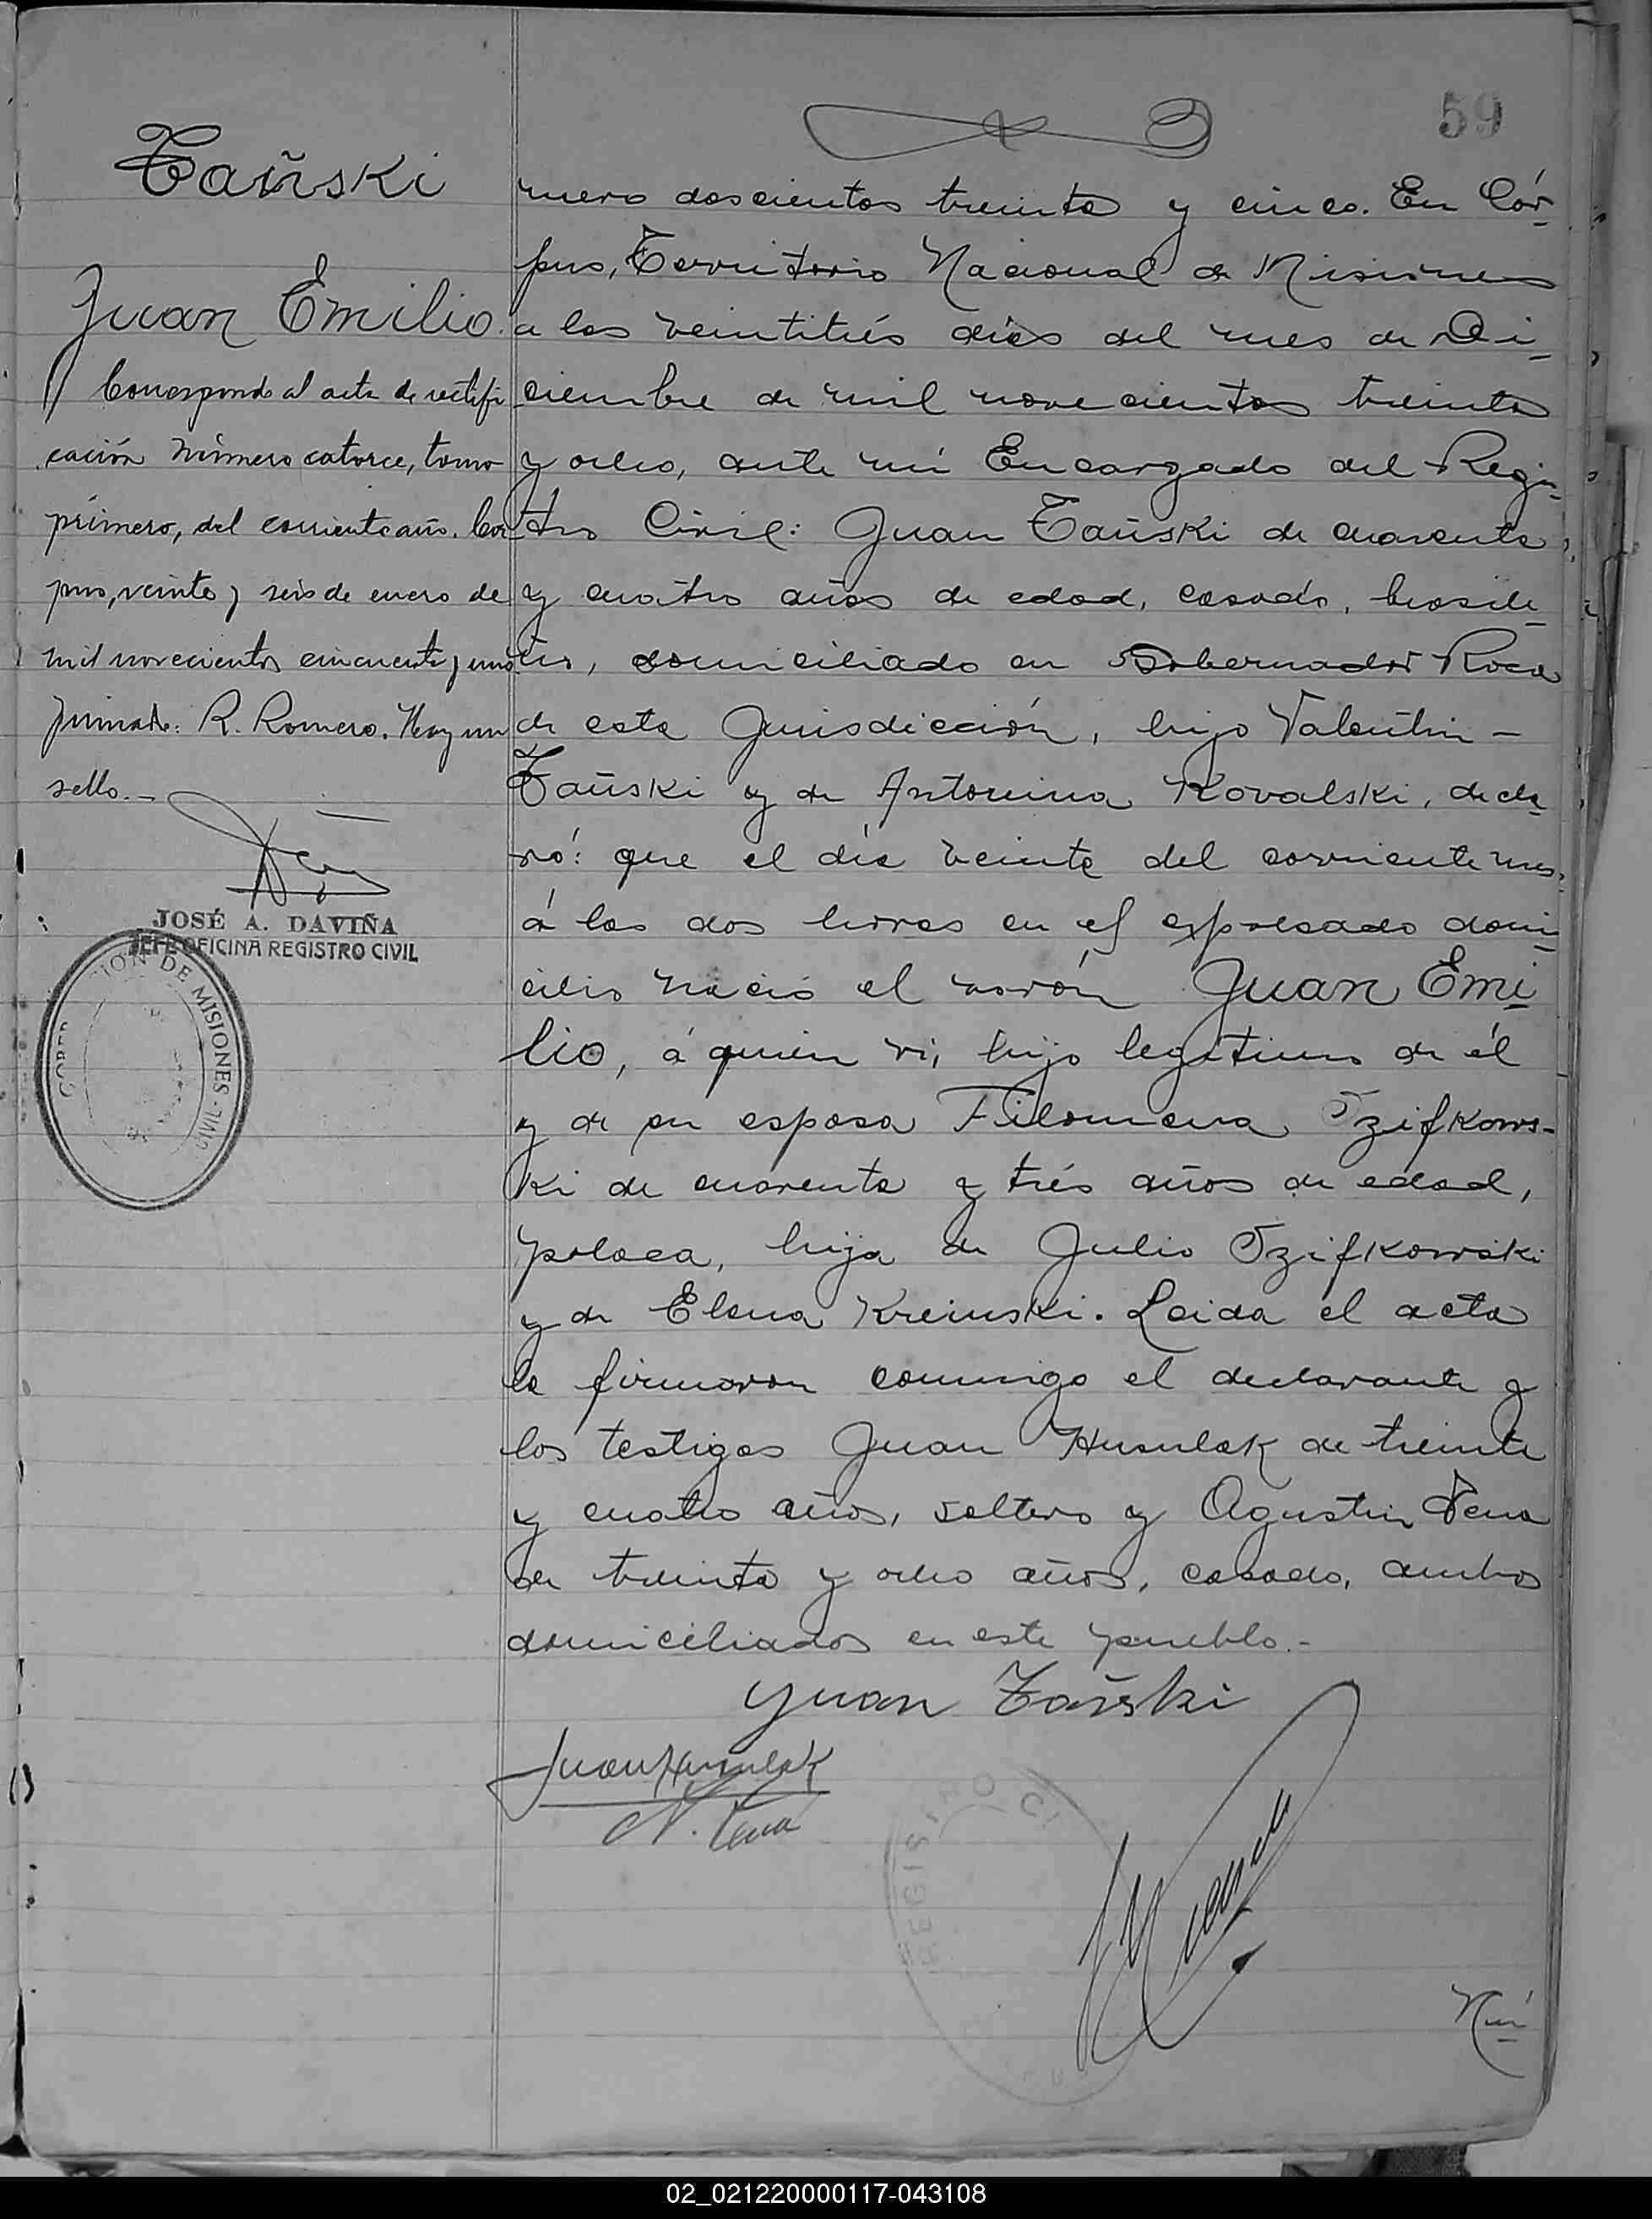 59
Tañski
Juan Emilio.
Corresponde al acta de rectifi
cación número catorce, tomo
primero, del corriente año. Cor
pus, veinte y seis de enero de
mil novecientos cincuenta y uno
firmado: R. Romero. Hay un
sello.-
JOSÉ A. DAVIÑA
JEFE OFICINA REGISTRO CIVIL
CION DE MISIONES - CIVIL
GOBER
mero doscientos treinta y cinco. En Cór-
pus, Territorio Nacional de Misiones
a los veintitrés días del mes de Di-
ciembre de mil novecientos treinta
y ocho, ante mi Encargado del Regis-
tro Civil: Juan Tañski de cuarenta
y cuatro años de edad, casado, brasile-
ro, domiciliado en Gobernador Roca
de esta Jurisdicción, hijo Valentin -
Tañski y de Antonina Kovalski, decla-
ró: que el día veinte del corriente mes
á las dos horas en el expresado domi-
cilio nació el varón Juan Emi-
lio, á quien vi, hijo legítimo de él
y de su esposa Filomena Tzifkows-
ki de cuarenta y trés años de edad,
polaca, hija de Julio Tzifkowski
y de Elena Kreinski. Leida el acta
la firmaron conmigo el declarante y
los testigos Juan Husulak de treinta
y cuatro años, soltero y Agustin Vena
de treinta y ocho años, casado, ambos
domiciliados en este pueblo.-
Juan Tañski
Juan Husulak
REGISTRO CI
Nú-
02_021220000117-043108